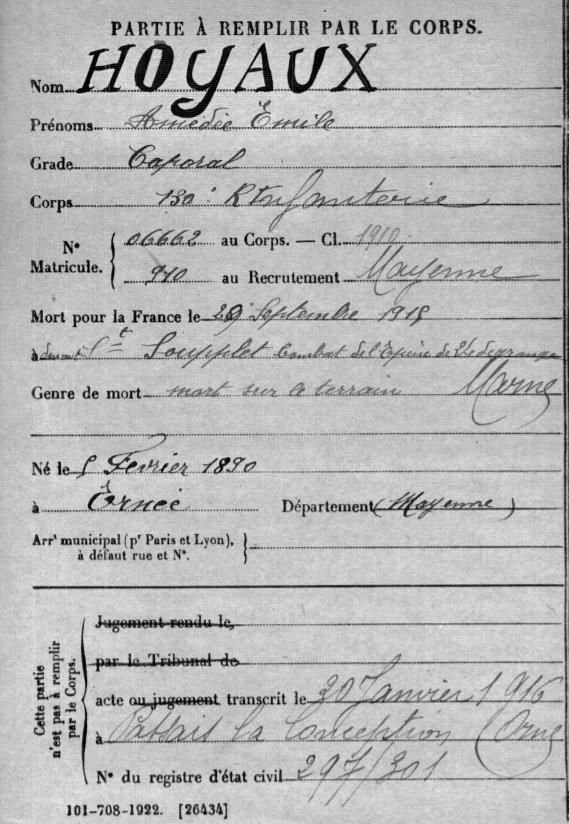 PARTIE À REMPLIR PAR LE CORPS.
Nom HOYAUX
Prénoms Amédée Émile
Grade Caporal
Corps 130e Rt Infanterie
N° Matricule. { 06662 au Corps. — Cl. 1910
910 au Recrutement Mayenne
Mort pour la France le 29 Septembre 1915
à devant St Soupplet Combat de l'Épine de Vedegrange
Marne
Genre de mort mort sur le terrain
Né le 5 Fevrier 1890
à Ernée Département (Mayenne)
Arrt municipal (pr Paris et Lyon), }
à défaut rue et N°.
Cette partie n'est pas à remplir par le Corps.
Jugement rendu le
par le Tribunal de
acte ou jugement transcrit le 20 Janvier 1916
à Passais la Conception (Orne
N° du registre d'état civil 297/301
101-708-1922. [26434]